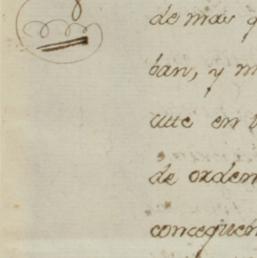 de mas
ban, y m
que en
de orden
concequen